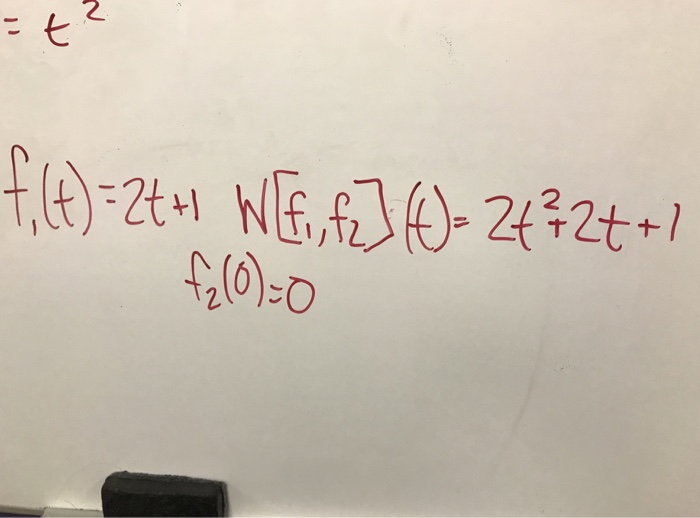 = t²
f₁(t)=2t+1 W[f₁,f₂](t)= 2t²+2t+1
f₂(0)=0